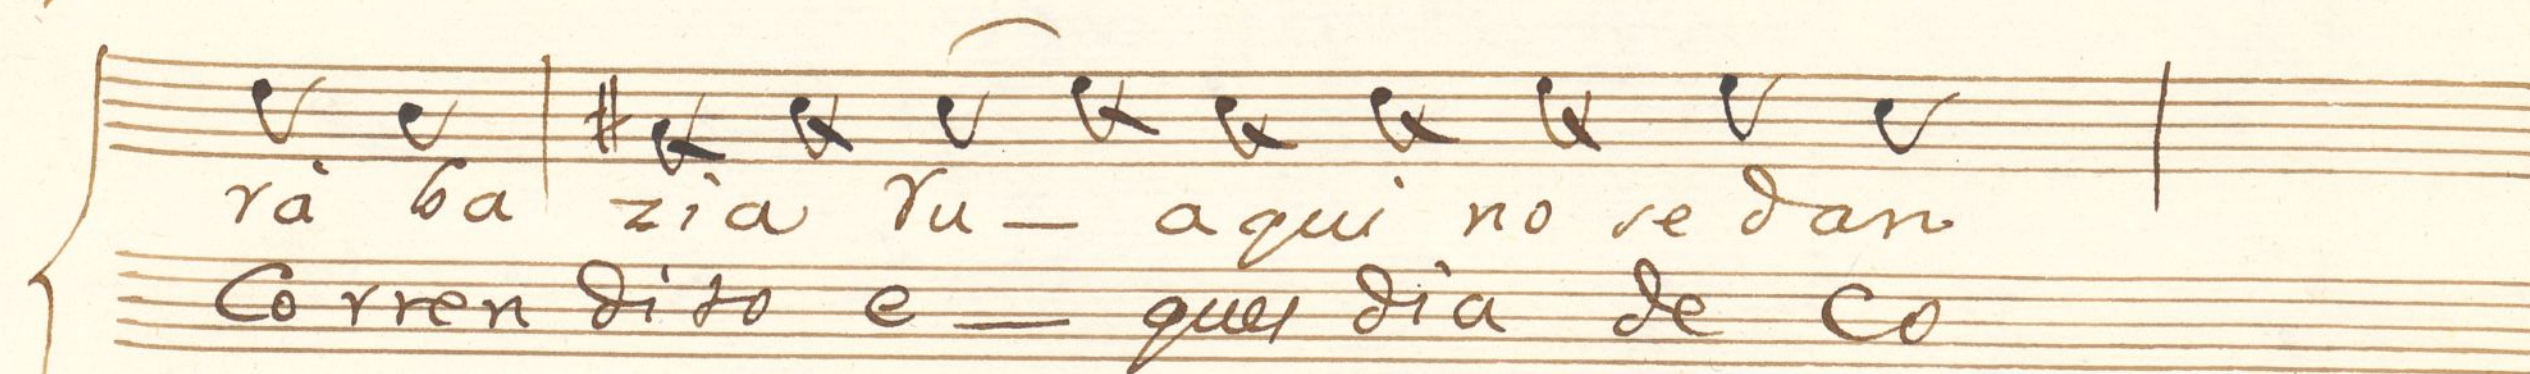 rá ba zia Vu — a qui no se dan
Co rren di so e — ques dia de Co